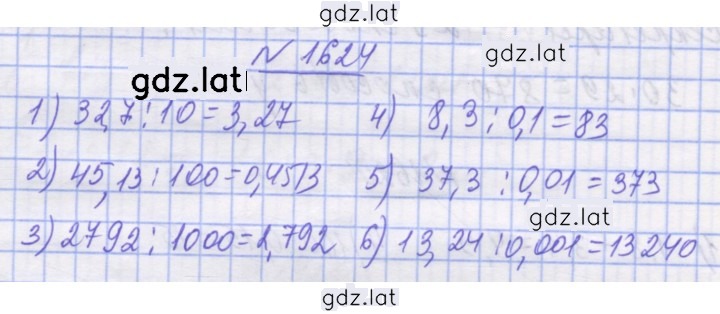 gdz.lat
№ 1624
gdz.lat
gdz.lat
1) 32,7 : 10 = 3,27
4) 8,3 : 0,1 = 83
2) 45,13 : 100 = 0,4513
5) 37,3 : 0,01 = 373
gdz.lat
3) 2792 : 1000 = 2,792
6) 13,24 : 0,001 = 13240
gdz.lat